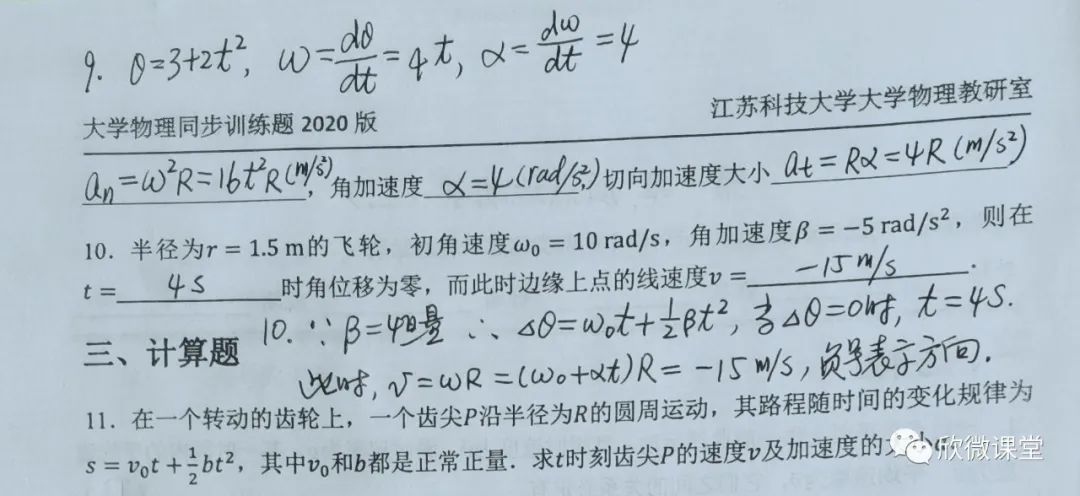 9. θ=3+2t², ω=dθ/dt=4t, α=dω/dt=4
江苏科技大学大学物理教研室
大学物理同步训练题 2020 版
aₙ=ω²R=16t²R(m/s²), 角加速度 α=4(rad/s²), 切向加速度大小 at=Rα=4R(m/s²)
10. 半径为r = 1.5 m的飞轮，初角速度ω₀ = 10 rad/s，角加速度β = −5 rad/s²，则在
t = 4s 时角位移为零，而此时边缘上点的线速度v = −15 m/s .
10. ∵ β=恒量 ∴ Δθ=ω₀t+½βt², 当Δθ=0时, t=4s.
三、计算题
此时, v=ωR=(ω₀+αt)R=−15 m/s, 负号表示方向.
11. 在一个转动的齿轮上，一个齿尖P沿半径为R的圆周运动，其路程随时间的变化规律为
s = v₀t + ½bt²，其中v₀和b都是正常正量. 求t时刻齿尖P的速度v及加速度的大
欣微课堂